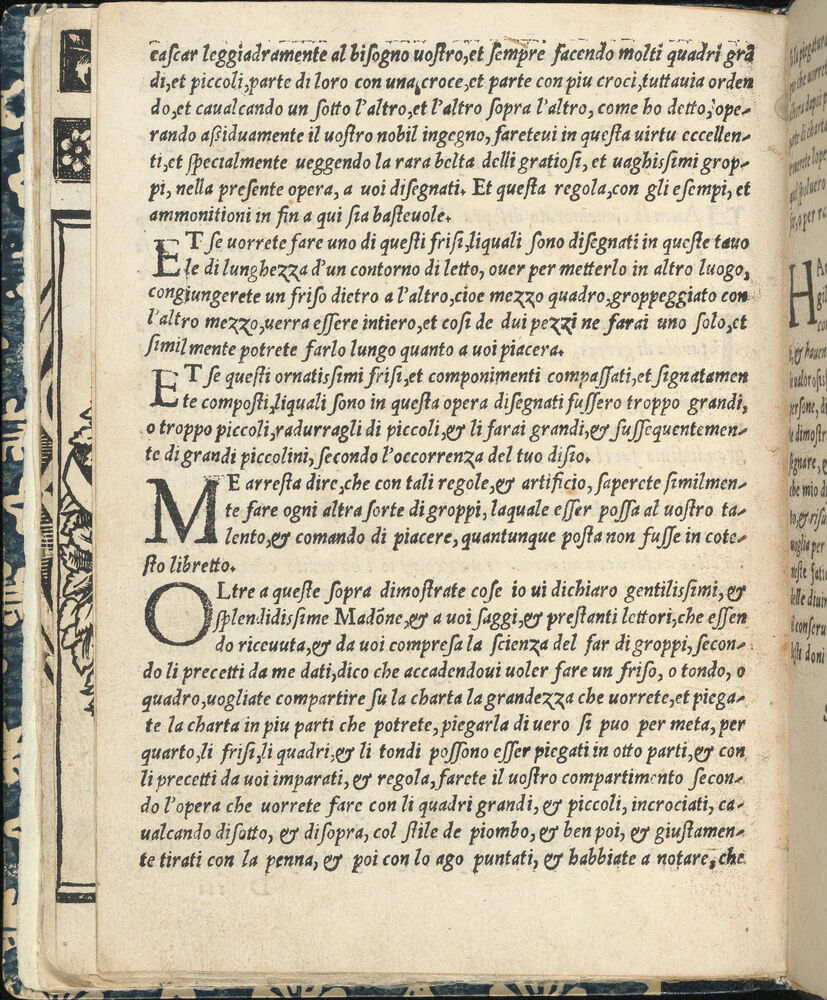 cascar leggiadramente al bisogno uostro,et sempre facendo molti quadri grã
di,et piccoli,parte di loro con una croce,et parte con piu croci,tuttauia orden
do,et caualcando un sotto l'altro,et l'altro sopra l'altro, come ho detto, ope-
rando assiduamente il uostro nobil ingegno, fareteui in questa uirtu eccellen-
ti,et specialmente ueggendo la rara belta delli gratiosi, et uaghissimi grop-
pi, nella presente opera, a uoi disegnati. Et questa regola,con gli esempi, et
ammonitioni in fin a qui sia basteuole.
ET se uorrete fare uno di questi frisi,liquali sono disegnati in queste tauo
le di lunghezza d'un contorno di letto, ouer per metterlo in altro luogo,
congiungerete un friso dietro a l'altro,cioe mezzo quadro,groppeggiato con
l'altro mezzo,uerra essere intiero,et cosi de dui pezzi ne farai uno solo,et
similmente potrete farlo lungo quanto a uoi piacera.
ET se questi ornatissimi frisi,et componimenti compassati,et signatamen
te composti,liquali sono in questa opera disegnati fussero troppo grandi,
o troppo piccoli,radurragli di piccoli,& li farai grandi,& sussequentemen-
te di grandi piccolini, secondo l'occorrenza del tuo disio.
ME arresta dire,che con tali regole,& artificio, saperete similmen-
te fare ogni altra sorte di groppi, laquale esser possa al uostro ta-
lento,& comando di piacere, quantunque posta non fusse in cote-
sto libretto.
OLtre a queste sopra dimostrate cose io ui dichiaro gentilissimi, &
splendidissime Madõne,& a uoi saggi,& prestanti lettori,che essen
do riceuuta,& da uoi compresa la scienza del far di groppi, secon-
do li precetti da me dati,dico che accadendoui uoler fare un friso, o tondo, o
quadro,uogliate compartire su la charta la grandezza che uorrete,et piega-
te la charta in piu parti che potrete, piegarla di uero si puo per meta, per
quarto,li frisi,li quadri,& li tondi possono esser piegati in otto parti,& con
li precetti da uoi imparati, & regola, farete il uostro compartimento secon-
do l'opera che uorrete fare con li quadri grandi, & piccoli, incrociati, ca-
ualcando disotto, & disopra, col stile de piombo, & ben poi, & giustamen-
te tirati con la penna, & poi con lo ago puntati, & habbiate a notare, che